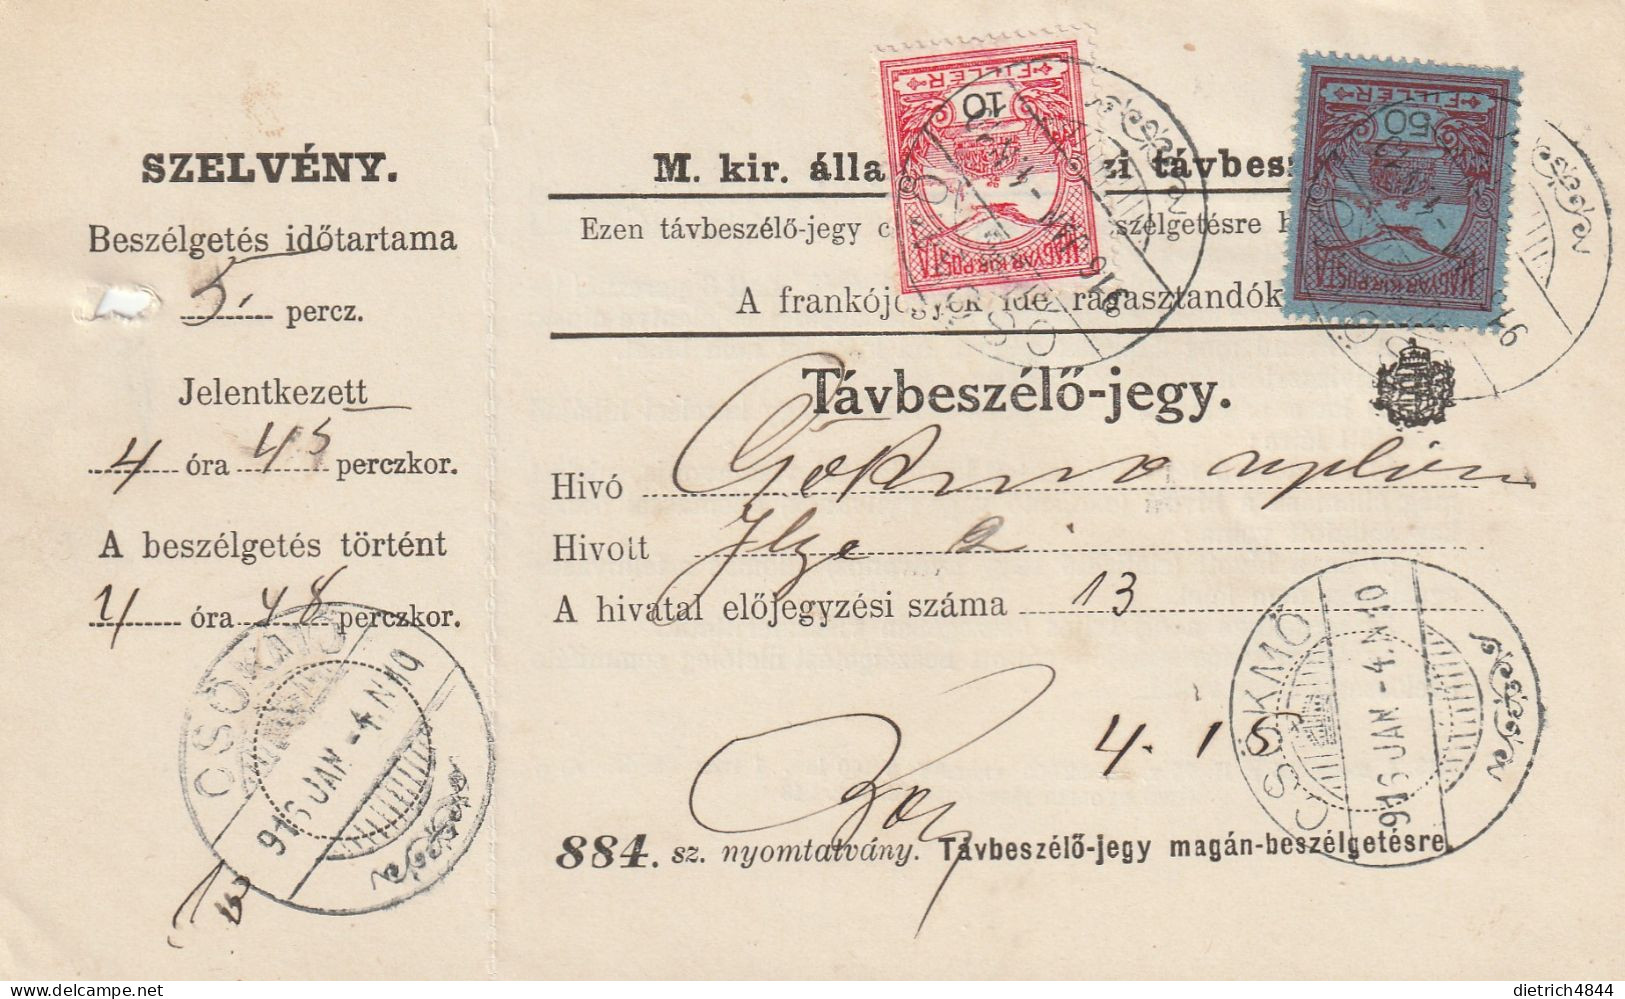 SZELVÉNY.
Beszélgetés időtartama
5 percz.
Jelentkezett
4 óra 45 perczkor.
A beszélgetés történt
4 óra 48 perczkor.
CSÖKMŐ
916 JAN -4.N10
M. kir. álla zi távbes
Ezen távbeszélő-jegy szélgetésre
A frankójegyek ide ragasztandók
10
FILLÉR
MAGYAR KIR. POSTA
50
FILLÉR
MAGYAR KIR. POSTA
Távbeszélő-jegy.
Hivó
Hivott
A hivatal előjegyzési száma 13
4. 15
CSÖKMŐ
916 JAN -4.N10
884. sz. nyomtatvány. Távbeszélő-jegy magán-beszélgetésre.
dietrich4844